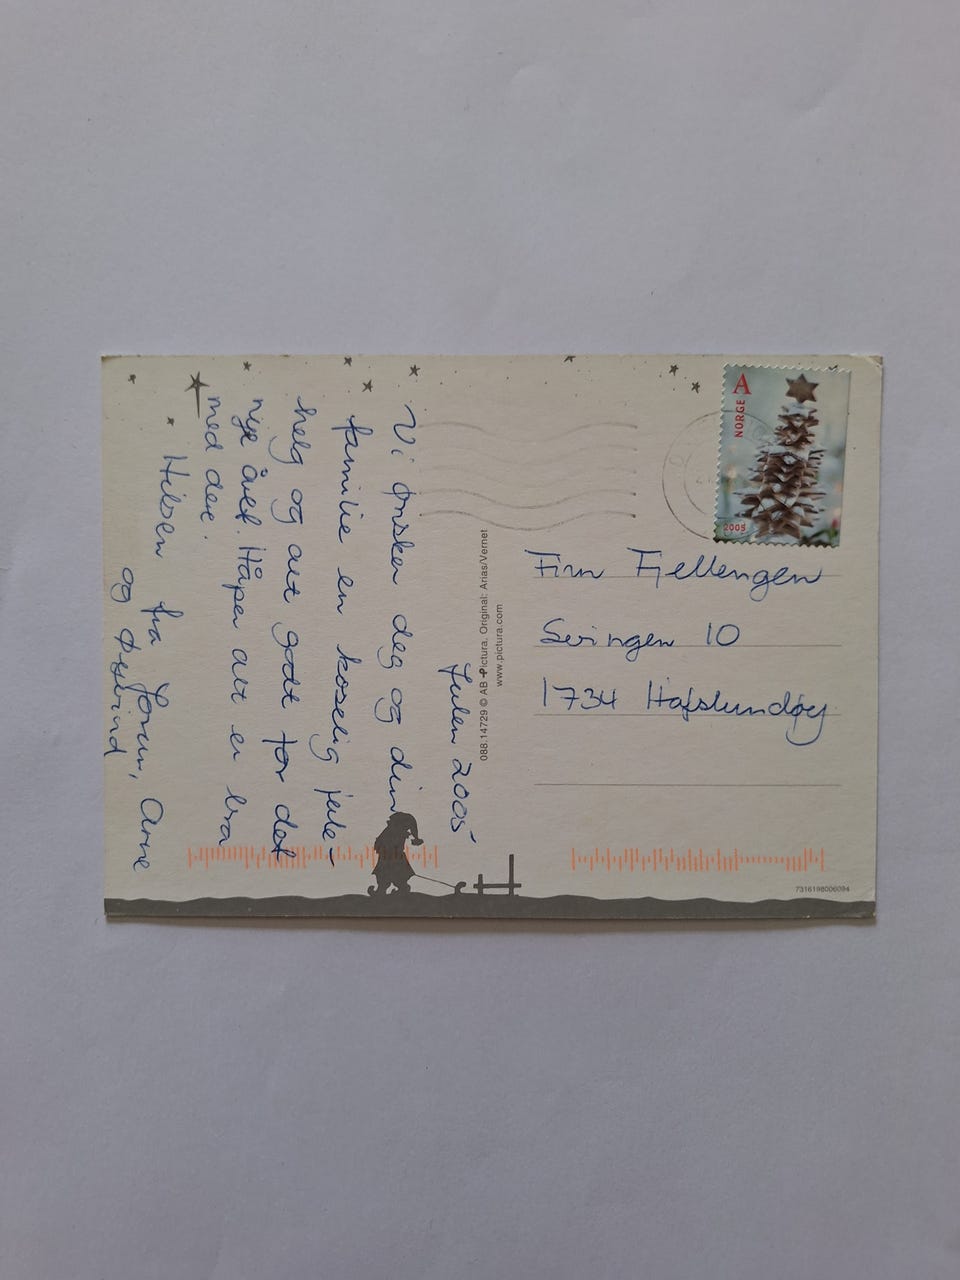 Julen 2005
Vi ønsker deg og din
familie en koselig jule-
helg og alt godt for det
nye året. Håper alt er bra
med dere.
Hilsen fra Jorun, Arne
og Øyvind
088.14729 © AB Pictura. Original: Arias/Vernet
www.pictura.com
A
NORGE
2005
Finn Fjellengen
Svingen 10
1734 Hafslundøy
7316198006094